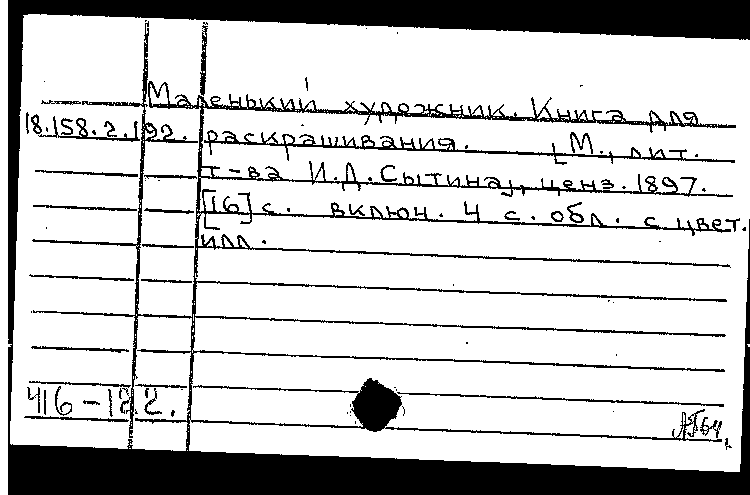 Маленький художник. Книга для
18.158.2.192. раскрашивания. [М., лит.
т-ва И.Д. Сытина], ценз. 1897.
[16] с. включ. 4 с. обл. с цвет.
илл.
416-122.